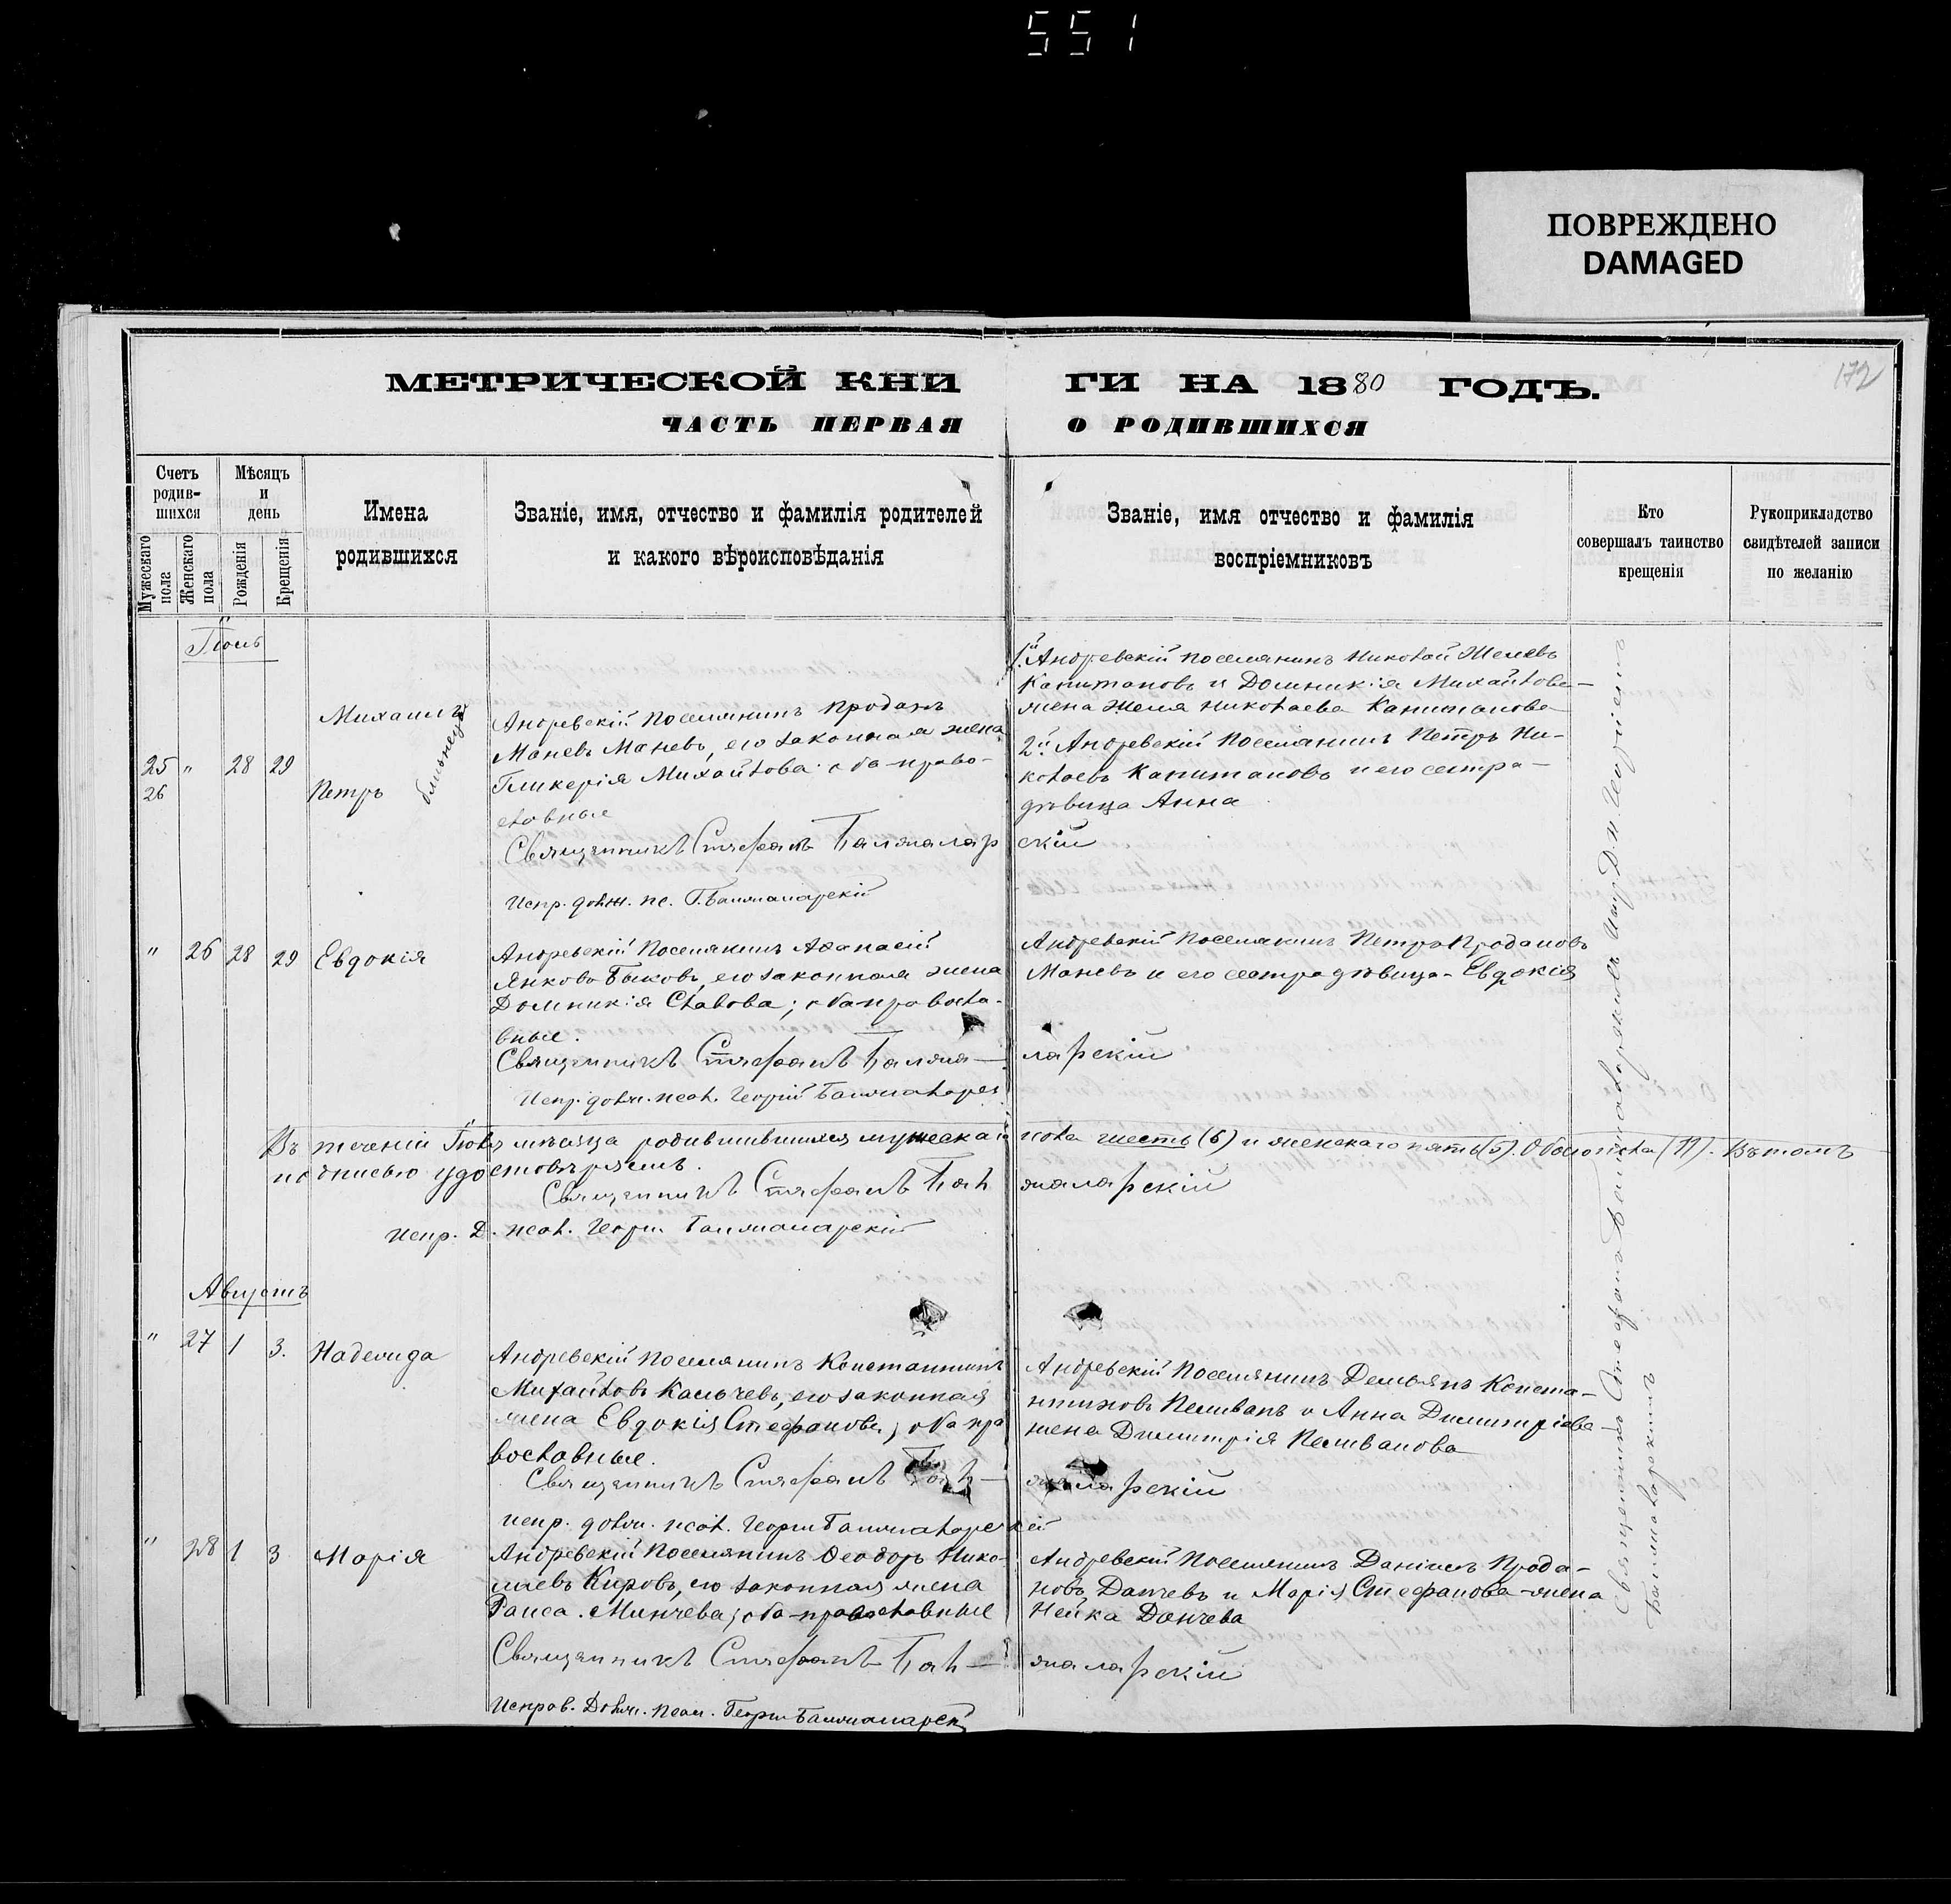 551
ПОВРЕЖДЕНО
DAMAGED
172
МЕТРИЧЕСКОЙ КНИ ГИ НА 1880 ГОДЪ.
ЧАСТЬ ПЕРВАЯ О РОДИВШИХСЯ
Счетъ родив-шихся
Мужескаго пола
Женскаго пола
Мѣсяцъ и день
Рожденія
Крещенія
Имена
родившихся
Званіе, имя, отчество и фамилія родителей
и какого вѣроисповѣданія
Званіе, имя отчество и фамилія
воспріемниковъ
Кто
совершалъ таинство
крещенія
Рукоприкладство
свидѣтелей записи
по желанію
Іюль
25 " 28 29
26
Михаилъ
Петръ
близнецы
Андревскій поселянинъ Проданъ
Маневъ Маневъ, его законная жена
Гликерія Михайлова оба право-
славные
Священникъ Стефанъ Балжалар скій
Испр. долж. пс. Г. Балжаларскій
1й Андревскій поселянинъ Николай Желевъ
Капитановъ и Домникія Михайлова
жена Желя Николаева Капитанова
2й Андревскій поселянинъ Петръ Ни-
колаевъ Капитановъ и его сестра
дѣвица Анна
" 26 28 29 Евдокія
Андревскій поселянинъ Афанасій
Янковъ Быковъ, его законная жена
Домникія Славова; оба правосла-
вные.
Священникъ Стефанъ Балжа- ларскій
Испр. долж. псал. Георгій Балжаларск
Андревскій поселянинъ Петръ Продановъ
Маневъ и его сестра дѣвица Евдокія
Въ теченіи Іюля мѣсяца родившившихся мужескаго пола шесть (6) и женскаго пять (5). Обоего пола (11). Въ томъ
подписью удостовѣряемъ.
Священникъ Стефанъ Бал жаларскій
Испр. Д. псал. Георгій Балжаларскій
Августъ
" 27 1 3. Надежда
Андревскій поселянинъ Константинъ
Михайловъ Калчевъ, его законная
жена Евдокія Стефанова; оба пра
вославные.
Священникъ Стефанъ Бал- жаларскій
испр. долж. псал. Георгій Балжаларскій
Андревскій поселянинъ Демьянъ Конста-
нтиновъ Пеливанъ и Анна Димитріева
жена Димитрія Пеливанова
" 28 1 3 Марія
Андревскій поселянинъ Феодоръ Нико-
лаевъ Кировъ, его законная жена
Раиса Минчева; оба православные
Священникъ Стефанъ Бал- жаларскій
Исправ. Долж. псал. Георгій Балжаларск
Андревскій поселянинъ Даніилъ Прода-
новъ Данчевъ и Марія Стефанова жена
Нейка Данчева
Священникъ Стефанъ Балжаларскій съ Георгіемъ
Балжаларскимъ